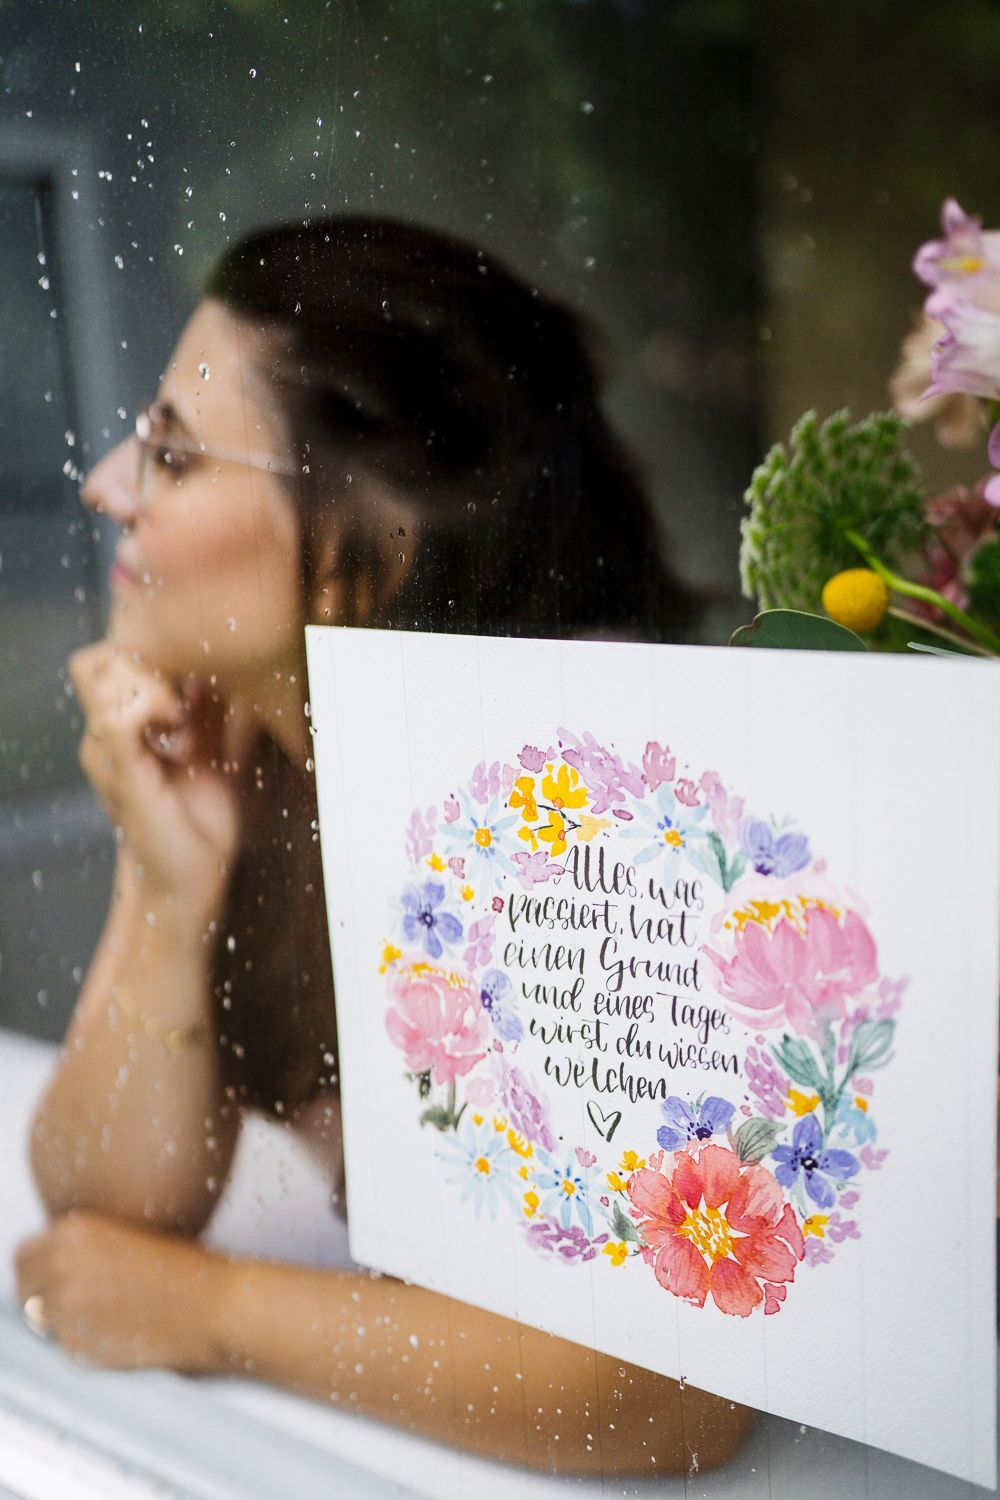 Alles, was
passiert, hat
einen Grund
und eines Tages
wirst du wissen,
welchen